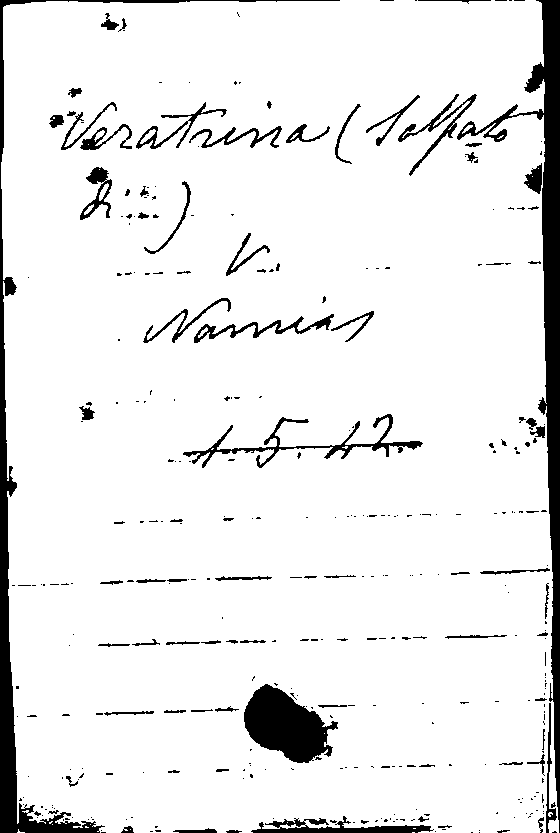 Veratrina (Solfato
di ... )
V.
Namias
1. 5. 42.